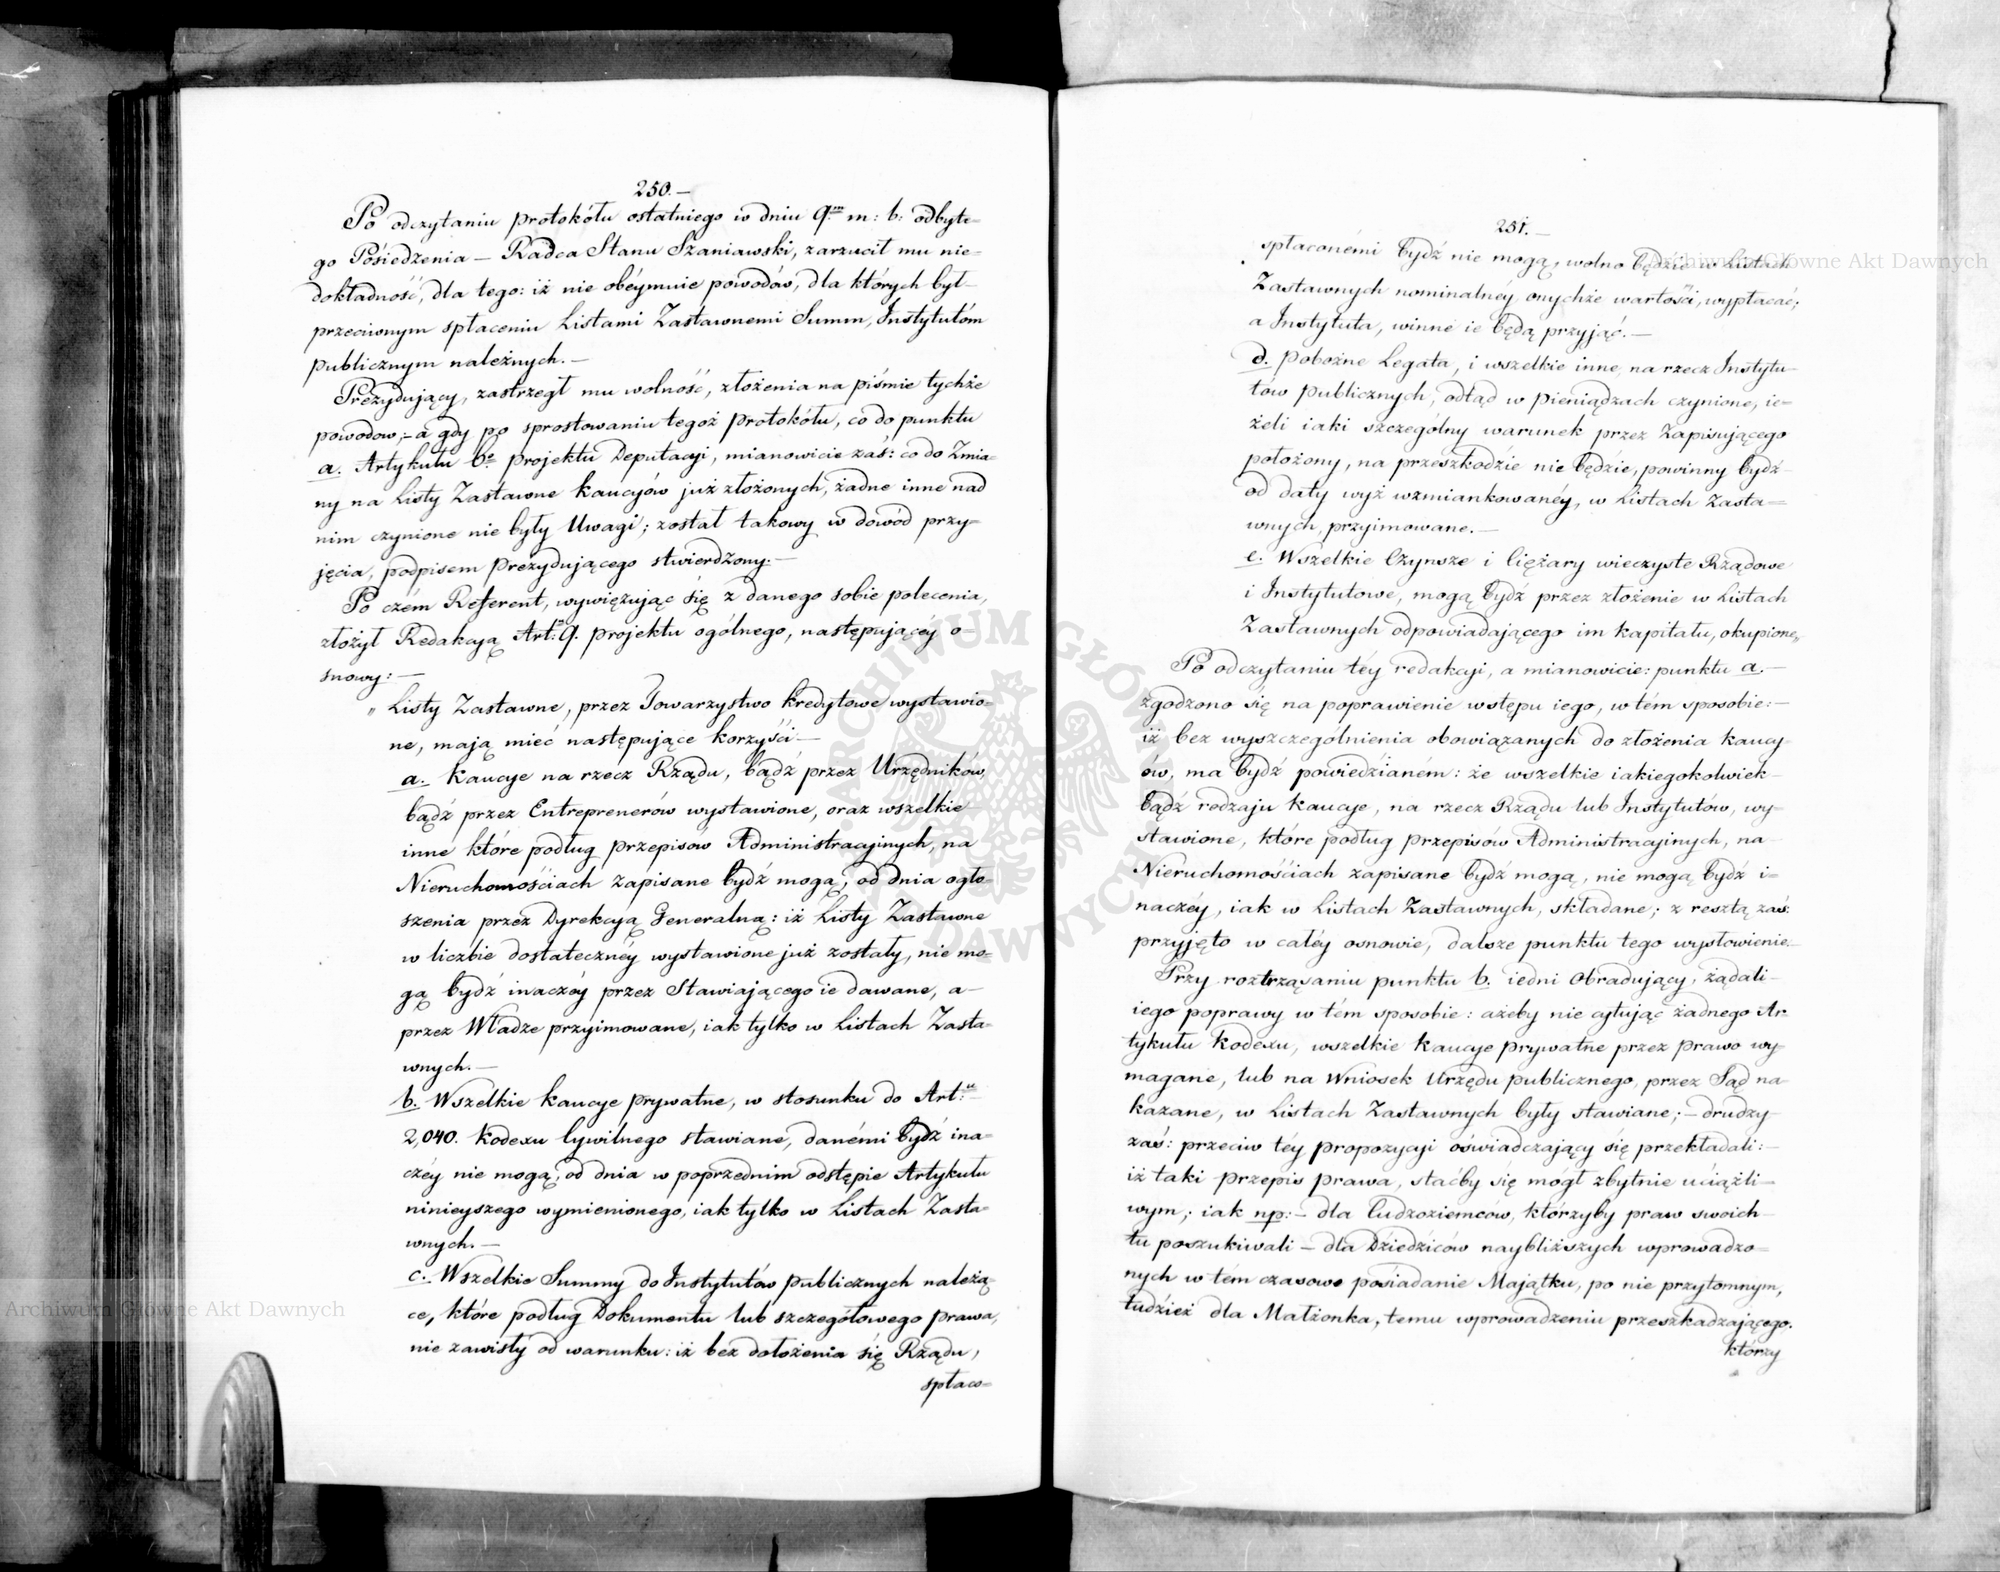 250.—
Po odczytaniu protokółu ostatniego w dniu 9.m m: b: odbyte=
go Posiedzenia — Radca Stanu Szaniawski, zarzucił mu nie=
dokładność, dla tego: iż nie obéymuie powodów, dla których był=
przeciwnym spłaceniu Listami Zastawnemi Summ, Instytutóm
publicznym należnych.—
Prezydujący, zastrzegł mu wolność, złożenia na piśmie tychże
powodow;- a gdy po sprostowaniu tegoż protokółu, co do punktu
a. Artykułu 6.o projektu Deputacyi, mianowicie zaś: co do Zmia=
ny na Listy Zastawne kaucyów już złożonych, żadne inne nad
nim czynione nie były Uwagi; został takowy w dowód przy=
jęcia, podpisem Prezydującego stwierdzony.—
Po czém Referent, wywięzując się z danego sobie polecenia,
złożył Redakcyą Art: 9. projektu ogólnego, następującéy o=
snowy:—
„ Listy Zastawne, przez Towarzystwo kredytowe wystawio=
ne, mają mieć następujące korzyści—
a. Kaucye na rzecz Rządu, bądź przez Urzędników,
bądź przez Entreprenerów wystawione, oraz wszelkie
inne które podług przepisów Administracyjnych, na
Nieruchomościach zapisane bydź mogą, od dnia ogło=
szenia przez Dyrekcyą Generalną: iż Listy Zastawne
w liczbie dostatecznéy wystawione już zostały, nie mo=
gą bydź inaczéy przez Stawiającego ie dawane, a—
przez Władze przyimowane, iak tylko w Listach Zasta=
wnych.—
b. Wszelkie kaucye prywatne, w stosunku do Art:u
2,040. Kodexu Cywilnego stawiane, danémi bydź ina=
czéy nie mogą, od dnia w poprzednim odstępie Artykułu
ninieyszego wymienionego, iak tylko w Listach Zasta=
wnych.—
c. Wszelkie Summy do Instytutów publicznych należą=
ce, które podług Dokumentu lub szczegółowego prawa,
nie zawisły od warunku: iż bez dołożenia się Rządu,
spłaco=
251.—
spłaconémi bydź nie mogą, wolno będzie w Listach
Zastawnych nominalnéy onychże wartości, wypłacać;
a Instytuta, winne ie będą przyjąć.—
d. Pobożne Legata, i wszelkie inne, na rzecz Instytu=
tów publicznych, odtąd w pieniądzach czynione, ie=
żeli iaki szczególny warunek przez Zapisującego
położony, na przeszkodzie nie będzie, powinny bydź—
od daty wyż wzmiankowanéy, w Listach Zasta=
wnych, przyimowane.—
e. Wszelkie Czynsze i Ciężary wieczyste Rządowe
i Instytutowe, mogą bydź przez złożenie w Listach
Zastawnych odpowiadającego im kapitału, okupione„
Po odczytaniu téy redakcyi, a mianowicie: punktu a.—
zgodzono się na poprawienie wstępu iego, w tém sposobie:—
iż bez wyszczególnienia obowiązanych do złożenia kaucy=
ów, ma bydź powiedzianém: że wszelkie iakiegokolwiek—
bądź rodzaju kaucye, na rzecz Rządu lub Instytutów, wy=
stawione, które podług przepisów Administracyjnych, na—
Nieruchomościach zapisane bydź mogą, nie mogą bydź i=
naczéy, iak w Listach Zastawnych, składane; z resztą zaś:
przyjęto w całéy osnowie, dalsze punktu tego wysłowienie.—
Przy roztrząsaniu punktu b. iedni Obradujący, żądali—
iego poprawy w tém sposobie: ażeby nie cytując żadnego Ar=
tykułu Kodexu, wszelkie kaucye prywatne przez prawo wy=
magane, lub na Wniosek Urzędu publicznego, przez Sąd na=
kazane, w Listach Zastawnych były stawiane;— drudzy—
zaś: przeciw téy propozycyi oświadczający się przekładali:—
iż taki przepis prawa, stać by się mógł zbytnie uciążli=
wym; iak np:— dla Cudzoziemców, którzyby praw swoich—
tu poszukiwali — dla Dziedziców naybliższych wprowadzo=
nych w tém czasowe posiadanie Majątku, po nie przytomnym,
tudzież dla Małżonka, temu wprowadzeniu przeszkadzającego.
którzy
Archiwum Główne Akt Dawnych
Archiwum Główne Akt Dawnych
ARCHIWUM GŁÓWNE AKT DAWNYCH